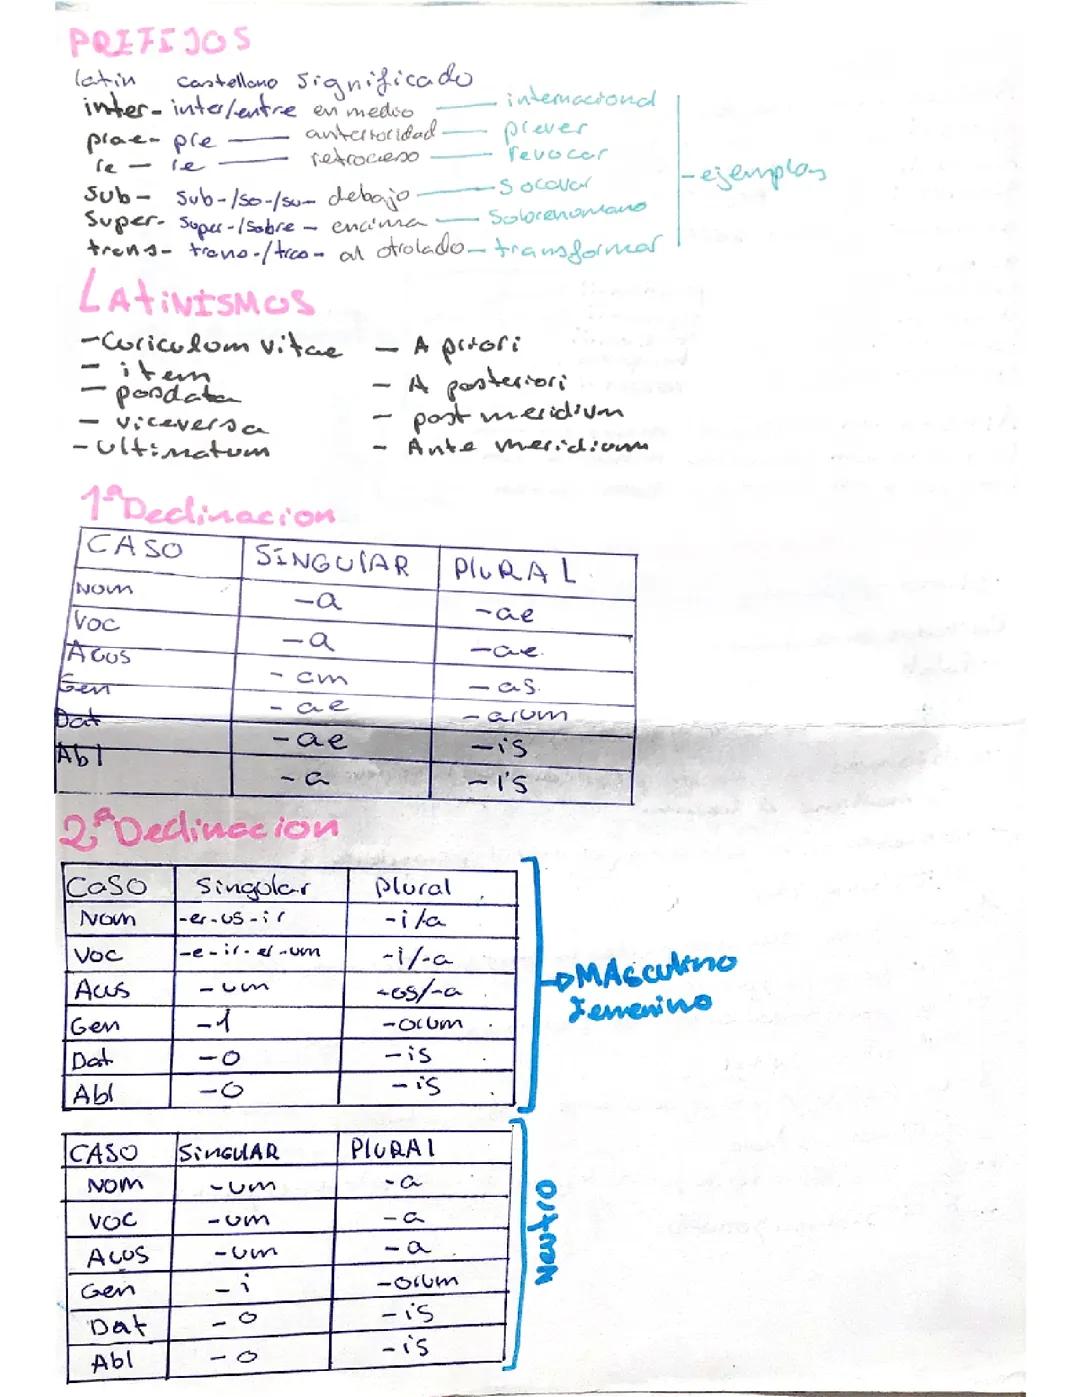 PREFIJOS
latin castellano significado
inter- inter/entre en medio — internacional
prae- pre — anterioridad — prever
re — re — retroceso — revocar
-ejemplos
Sub- Sub-/so-/su- debajo — Socavar
Super- Super-/Sobre - encima — Sobrenomano
trans- trans-/tras- al otrolado - transformar
LATINISMOS
-Curiculom vitae - A priori
- item - A posteriori
- posdata - post meridium
- viceversa - Ante meridium
- Ultimatum
1ª Declinacion
CASO SINGULAR PLURAL
NOM -a -ae
VOC -a -ae
Acus - am - as
Gen - ae - arum
Dat - ae - is
Abl - a - is
2ª Declinacion
CASO Singular plural
Nom -er-us-ir -i/a
Voc -e-ir-er-um -i/-a
Acus - um -os/-a
Gen -i -orum
Dat -o -is
Abl -o -is
MAsculino
Femenino
CASO SinGULAR PLURAL
NOM -um -a
VOC -um -a
Acus -um -a
Gen -i -orum
Dat -o -is
Abl -o -is
Neutro